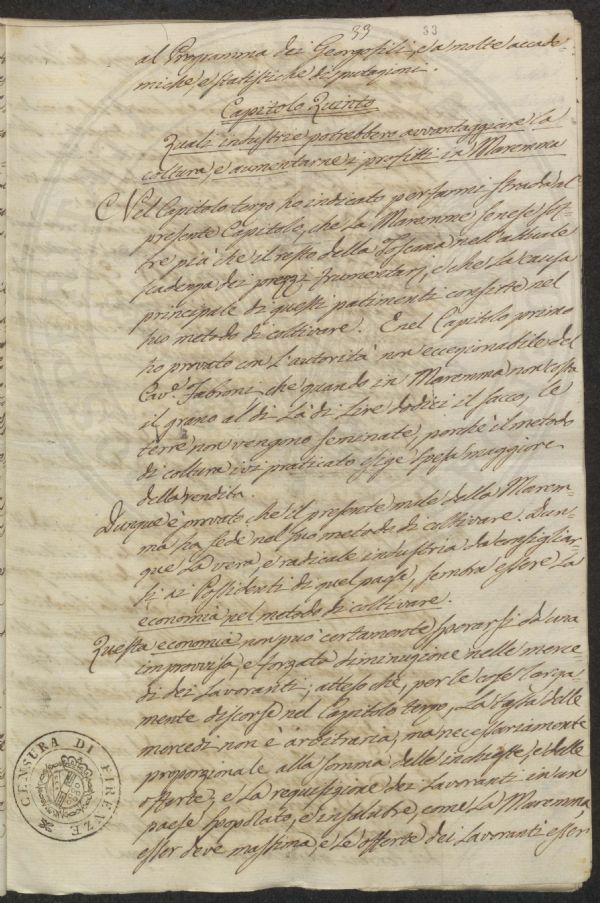 33 33
al Programma dei Georgofili, e a molte accade=
miche, e statistiche disputazioni.
Capitolo Quinto
Quali industrie potrebbero avvantaggiare la
coltura, e aumentarne i profitti in Maremma
Nel Capitolo terzo ho indicato per farmi strada al
presente Capitolo, che la Maremma senese sof=
fre più che il resto della Toscana nell'attuale
scadenza dei prezzi frumentarj, e che la causa
principale di questi patimenti consiste nel
suo metodo di coltivare. E nel Capitolo primo
ho provato con l'autorità non eccezionabile del
Cav.e Fabroni, che quando in Maremma non costa
il grano al di là di Lire dodici il sacco, le
terre non vengono seminate, perchè il metodo
di coltura ivi praticato esige spesa maggiore
della rendita.
Dunque è provato che il presente male della Marem=
ma ha sede nel suo metodo di coltivare. Dun=
que la vera, e radicale industria da consigliar=
si ai Possidenti di quel paese, sembra essere la
economia nel metodo di coltivare.
Questa economia non può certamente sperarsi da una
improvvisa, e forzata diminuzione nelle merce=
di dei Lavoranti; atteso che, per le cose larga=
mente discorse nel Capitolo terzo, la tassa delle
mercedi non è arbitraria, ma necessariamente
proporzionale alla somma delle inchieste, e delle
offerte; e la requisizione dei Lavoranti in un
paese spopolato, e insalubre, come la Maremma,
esser deve massima, e le offerte dei Lavoranti esser
CENSURA DI FIRENZE